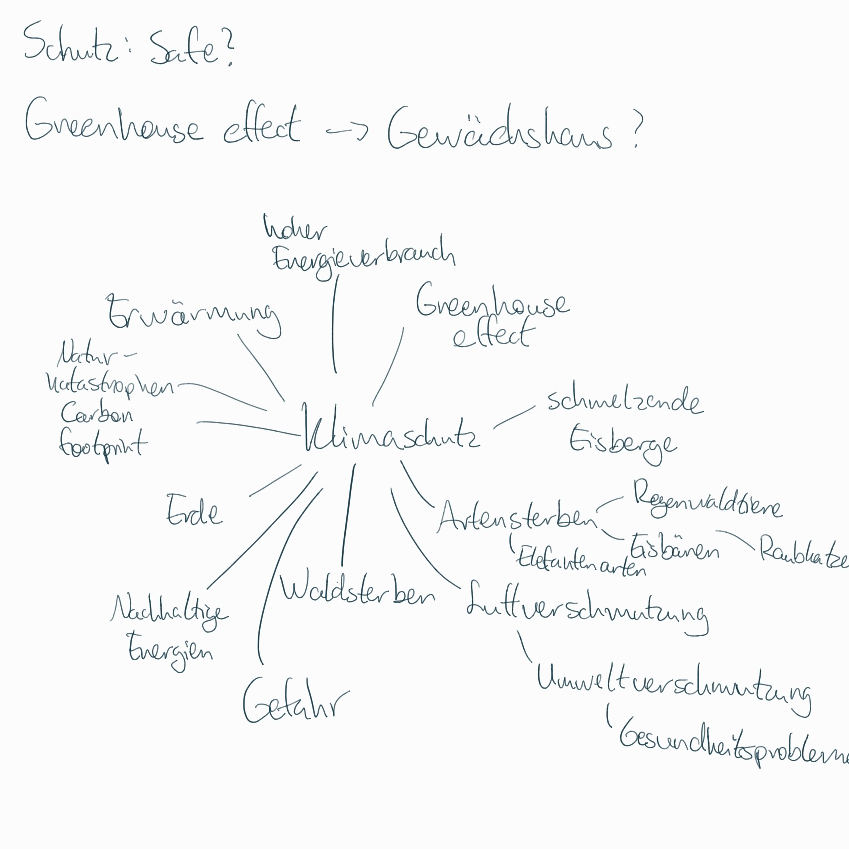 Schutz: Safe?
Greenhouse effect -> Gewächshaus?
hoher
Energieverbrauch
Erwärmung
Greenhouse
effect
Natur-
katastrophen
Carbon
footprint
Klimaschutz
schmelzende
Eisberge
Erde
Artensterben
Regenwaldtiere
Eisbären
Raubkatze
Elefantenarten
Nachhaltige
Energien
Waldsterben
Luftverschmutzung
Gefahr
Umweltverschmutzung
Gesundheitsprobleme